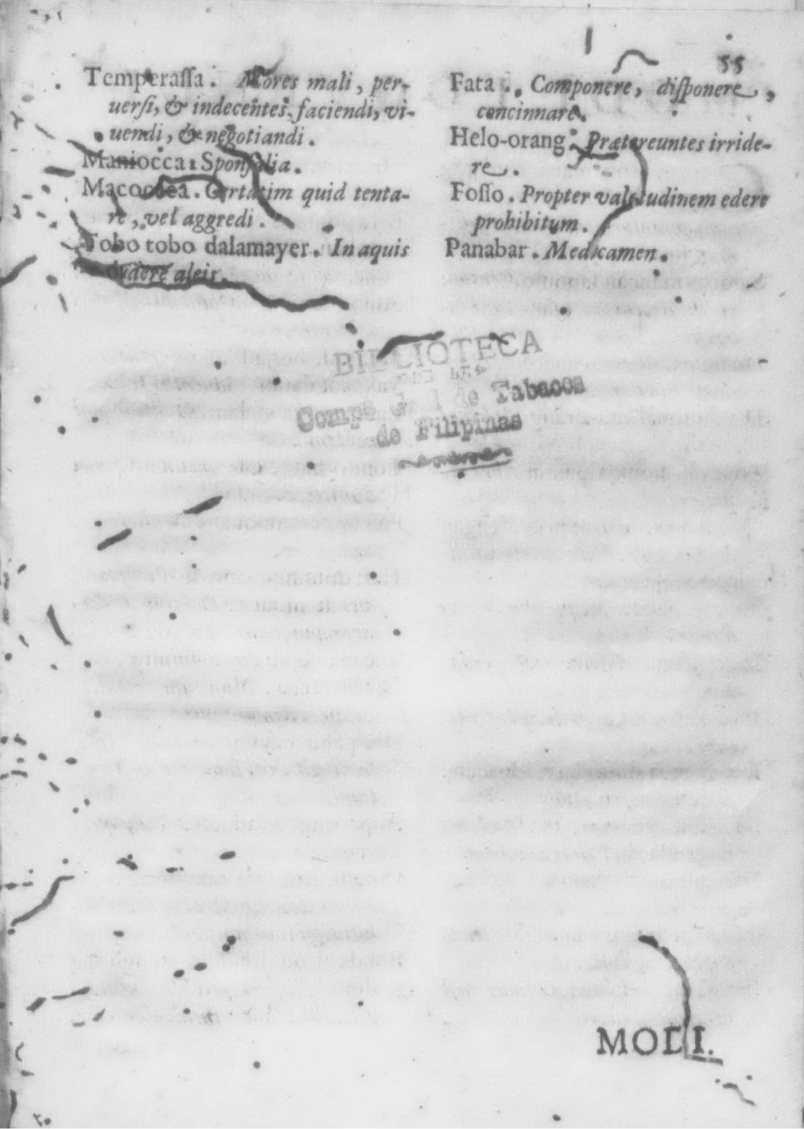 55
Temperaſſa. Mores mali, per-
uerſi, & indecentes faciendi, vi-
uendi, & negotiandi.
Maniocca: Sponſalia.
Macocoea. Certatim quid tenta-
re, vel aggredi.
Tobo tobo dalamayer. In aquis
ludere aleis.
Fata. Componere, diſponere,
concinnare.
Helo-orang. Prætereuntes irride-
re.
Foſſo. Propter valetudinem edere
prohibitum.
Panabar. Medicamen.
BIBLIOTECA
Compª Gral de Tabacos
de Filipinas
MODI.